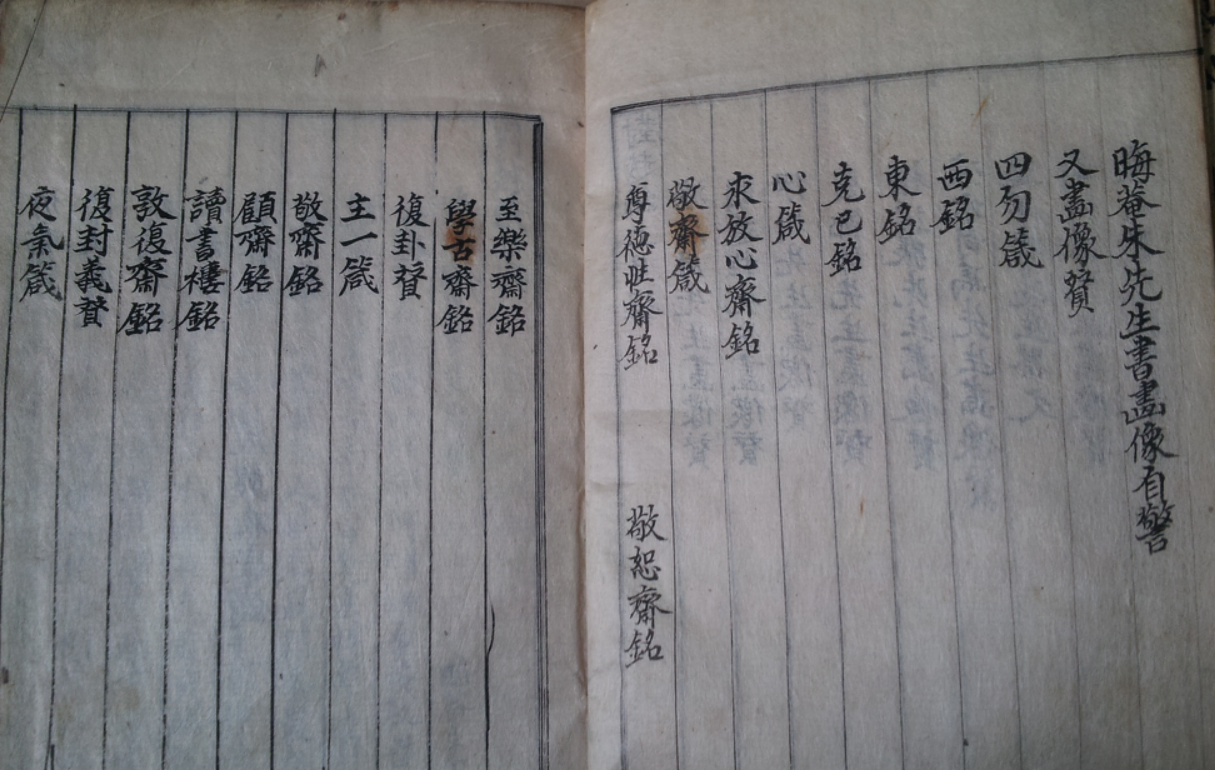 晦菴朱先生書畵像自警
又畵像贊
四勿箴
西銘
東銘
克己銘
心箴
求放心齋銘
敬齋箴
尊德性齋銘 敬恕齋銘
至樂齋銘
學古齋銘
復卦贊
主一箴
敬齋銘
顧齋銘
讀書樓銘
敦復齋銘
復封義贊
夜氣箴